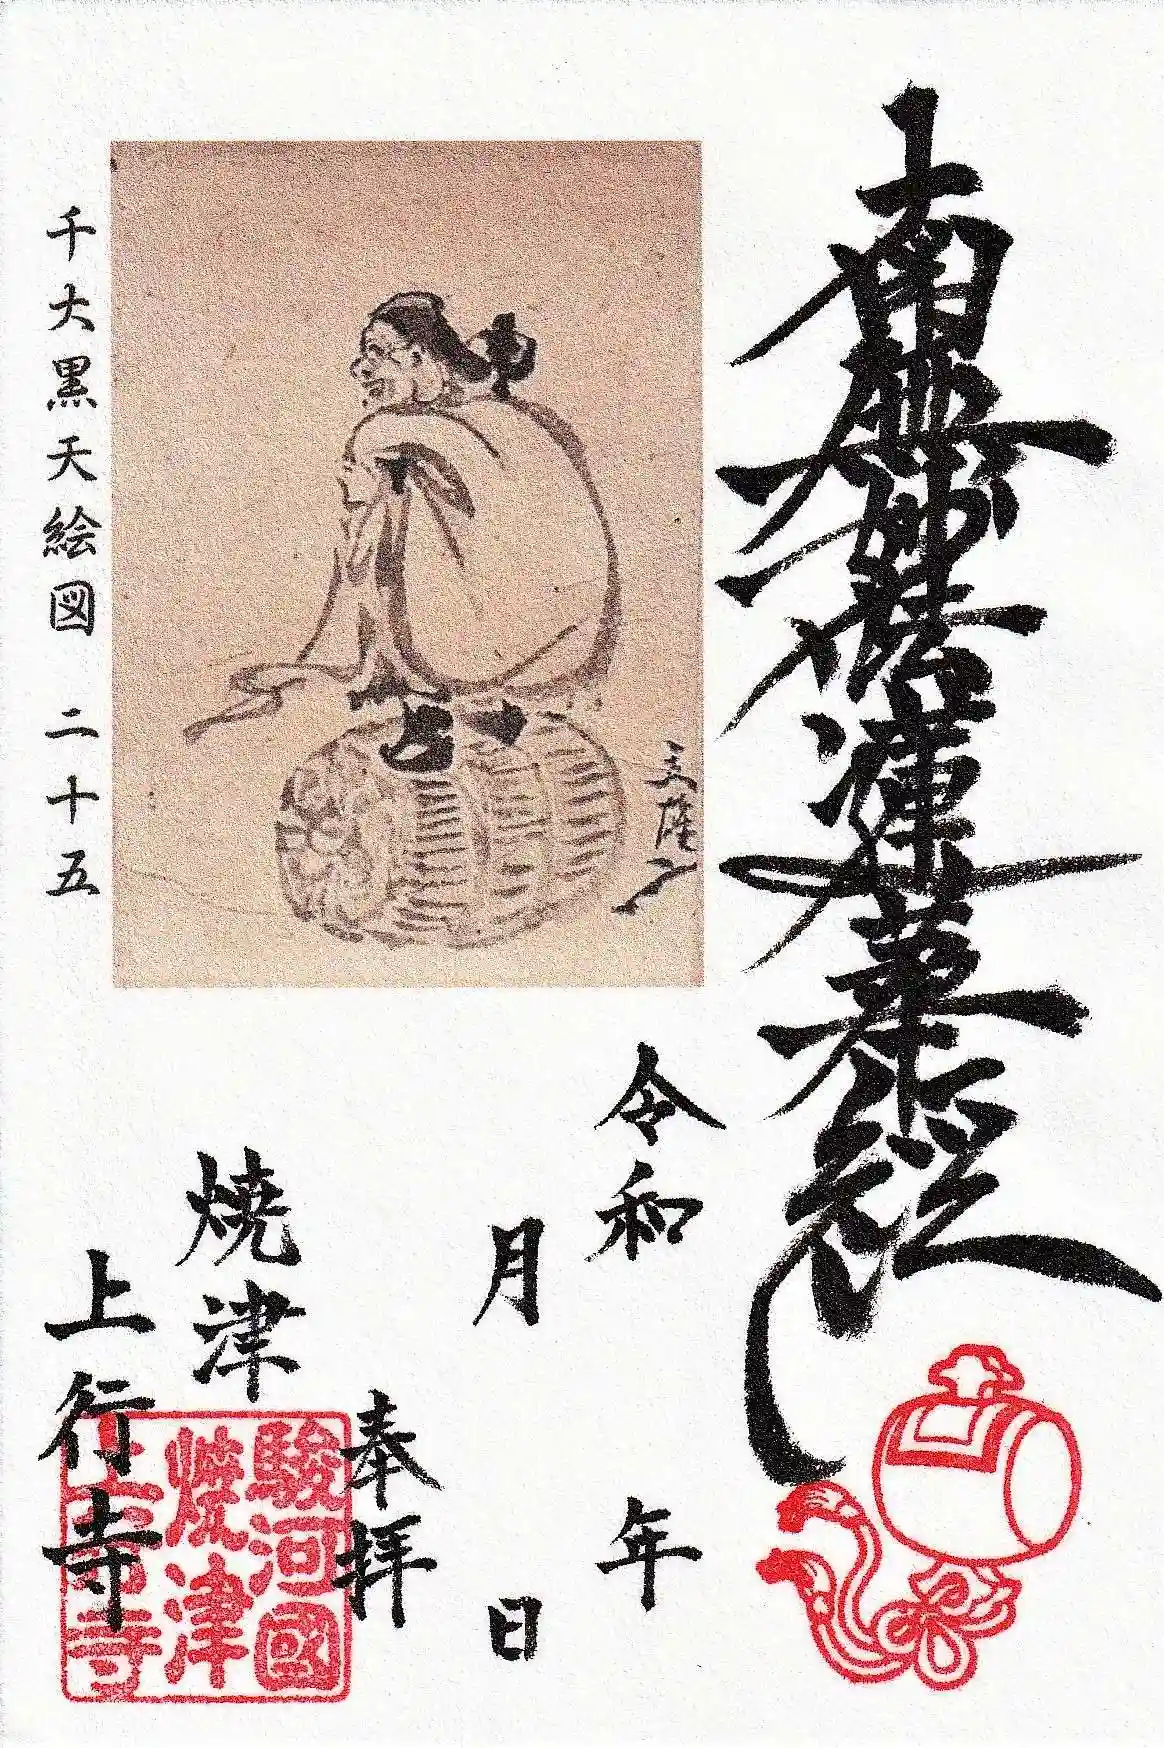 南無妙法蓮華経
令和 年
月 日
奉拝
焼津
上行寺
千大黒天絵図 二十五
駿河國
焼津
上行寺